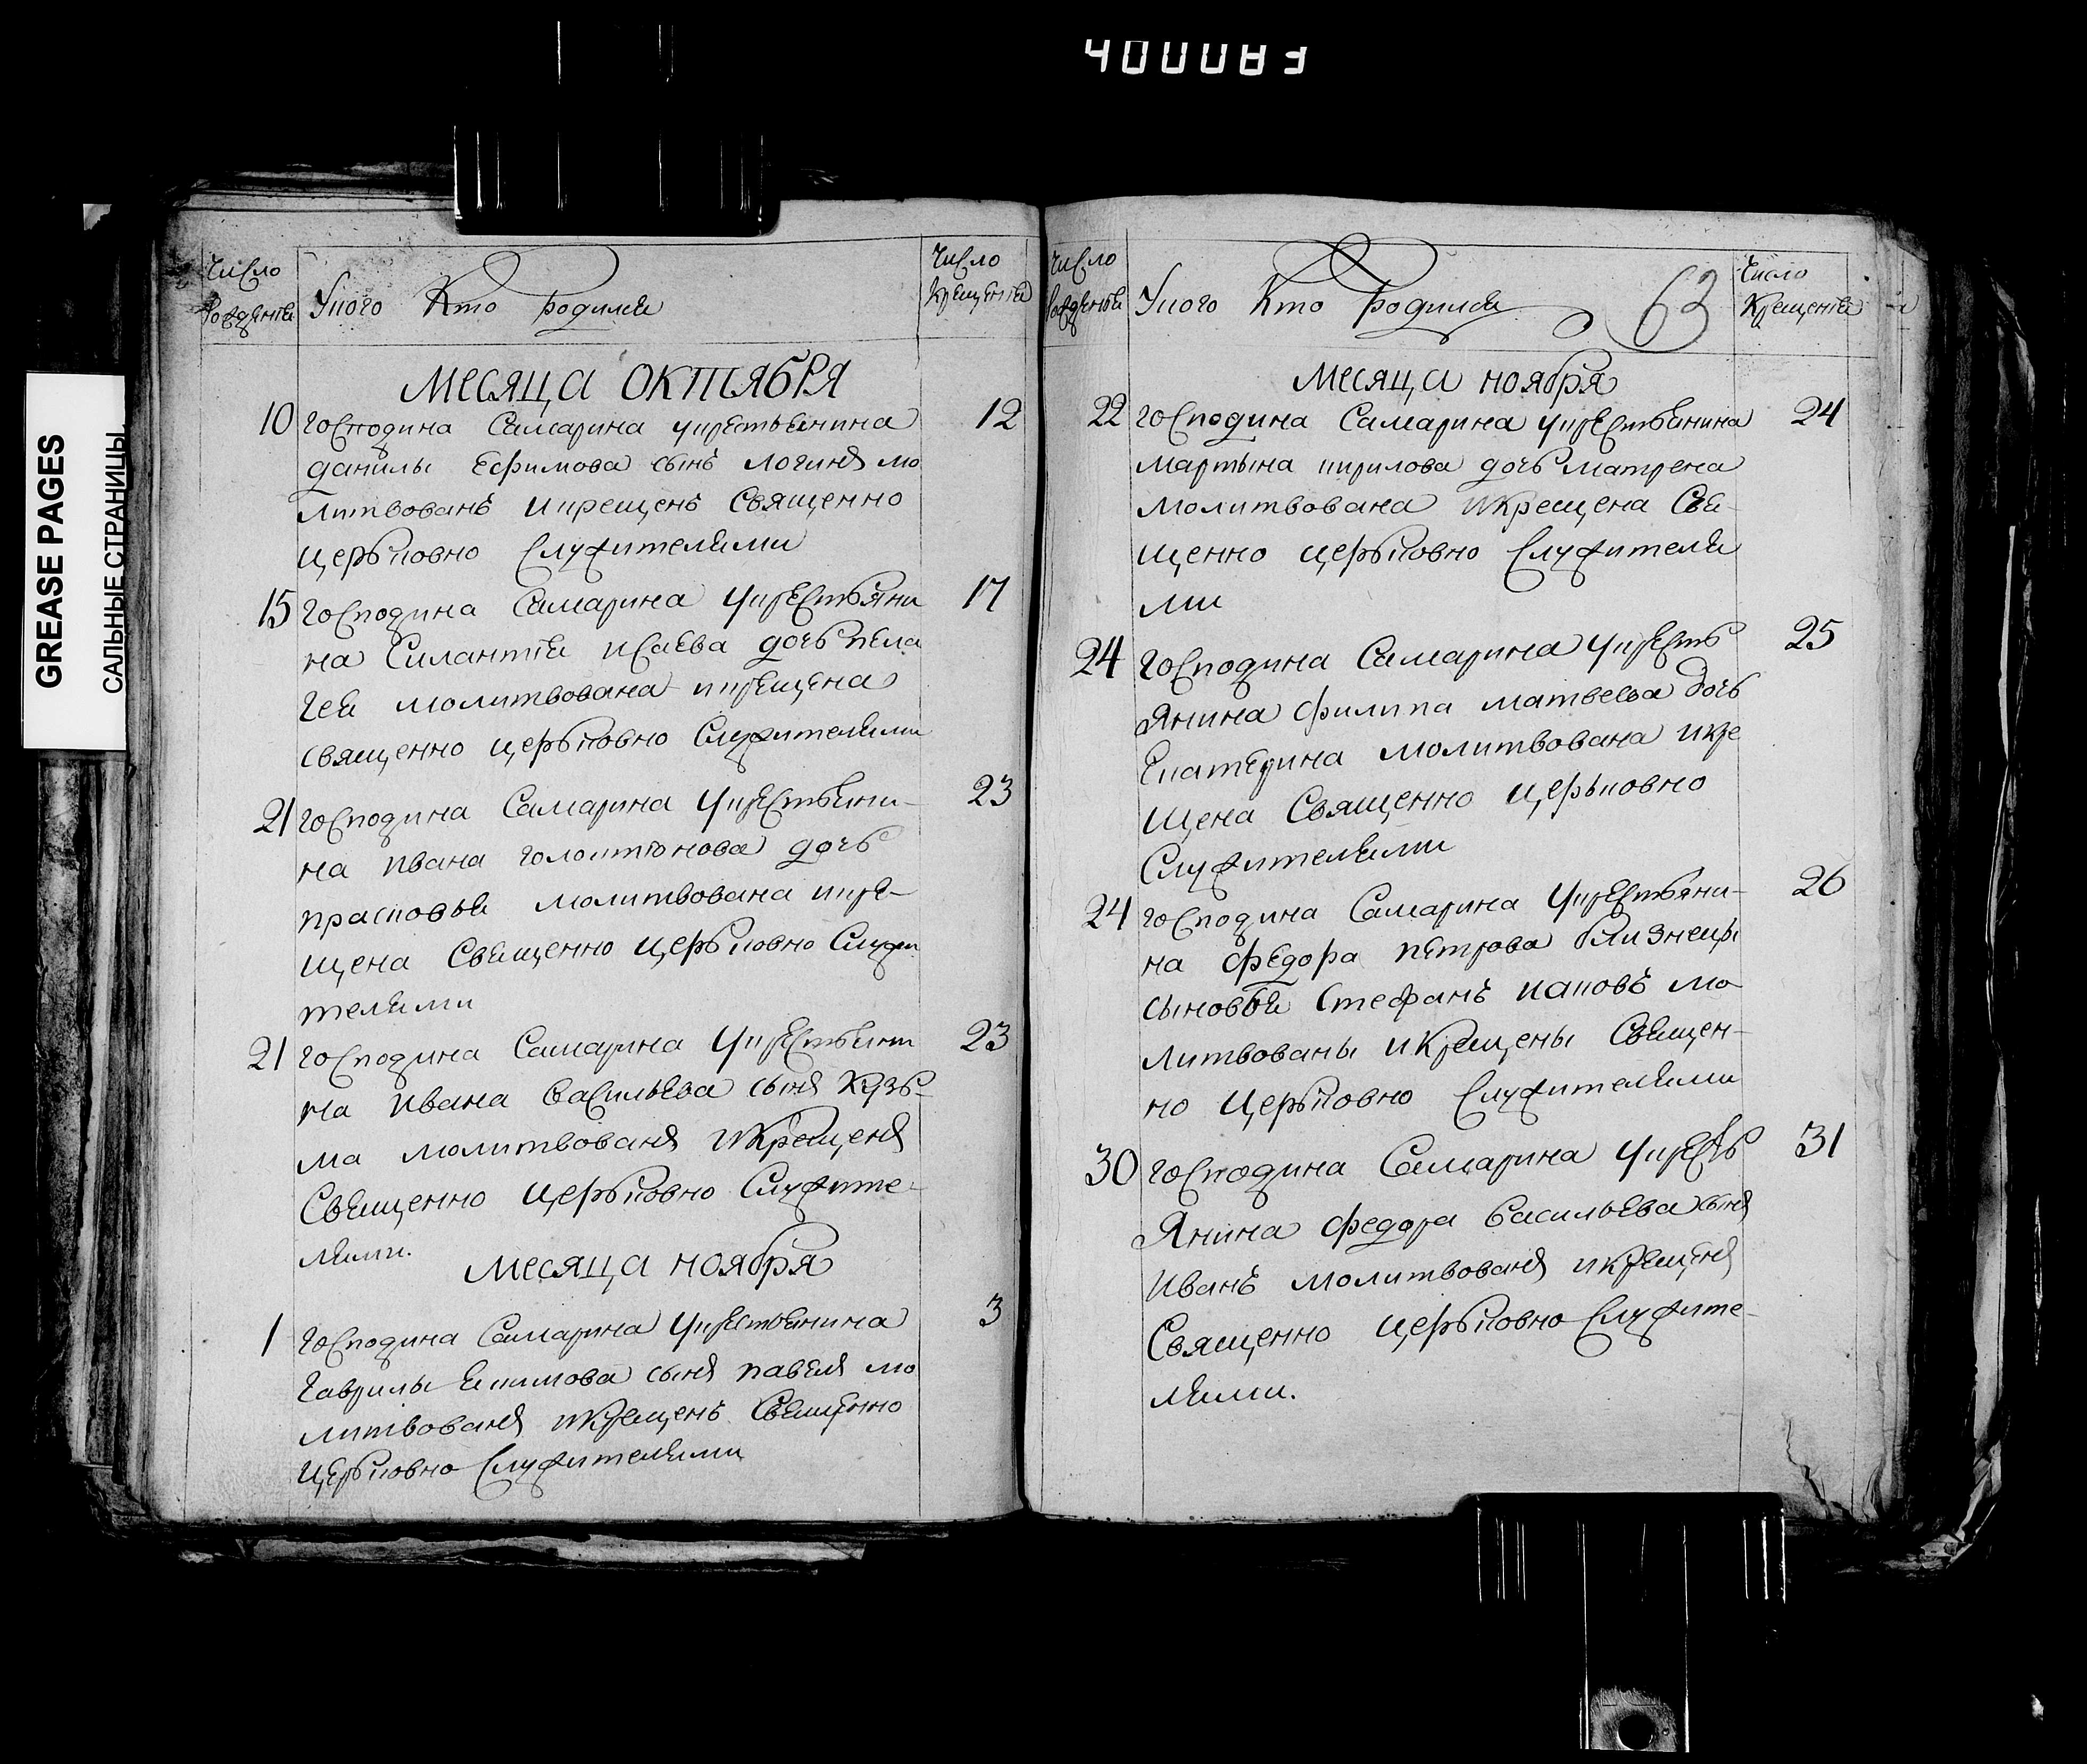 400083
GREASE PAGES
САЛЬНЫЕ СТРАНИЦЫ
Число
Рождения
Укого Кто родился
Число
Крещения
Месяца октября
10 Господина Самарина укрестьянина 12
данилы Ефимова сынъ логинъ мо
литвованъ икрещенъ Священно
церьковно Служителями
15 Господина Самарина укрестьяни 17
на Силантия исаева дочь пела
гея молитвована икрещена
священно церьковно Служителями
21 Господина Самарина укрестьяни- 23
на ивана голактионова дочь
прасковья молитвована икре-
щена Священно церьковно Служи
телями
21 Господина Самарина укрестьяни 23
на ивана васильева сынъ Кузь-
ма молитвованъ икрещенъ
Священно церьковно Служите-
лями.
Месяца ноября
1 Господина Самарина укрестьянина 3
Гаврилы Екимова сынъ павелъ мо
литвованъ икрещенъ Священно
церьковно Служителями
Число
Рождения
Укого Кто родился
63
Число
Крещения
Месяца ноября
22 Господина Самарина укрестьянина 24
мартына кирилова дочь матрена
молитвована икрещена Свя-
щенно церьковно Служителя
ми
24 Господина Самарина укресть 25
янина филипа матвеева дочь
Екатерина молитвована икре
щена Священно церьковно
Служителями
24 Господина Самарина укрестьяни- 26
на федора петрова близнецы
сыновья Стефанъ иаковъ мо
литвованы икрещены Священ-
но церьковно Служителями
30 Господина Самарина укресть 31
янина федора васильева сынъ
Иванъ молитвованъ икрещенъ
Священно церьковно Служите-
лями.